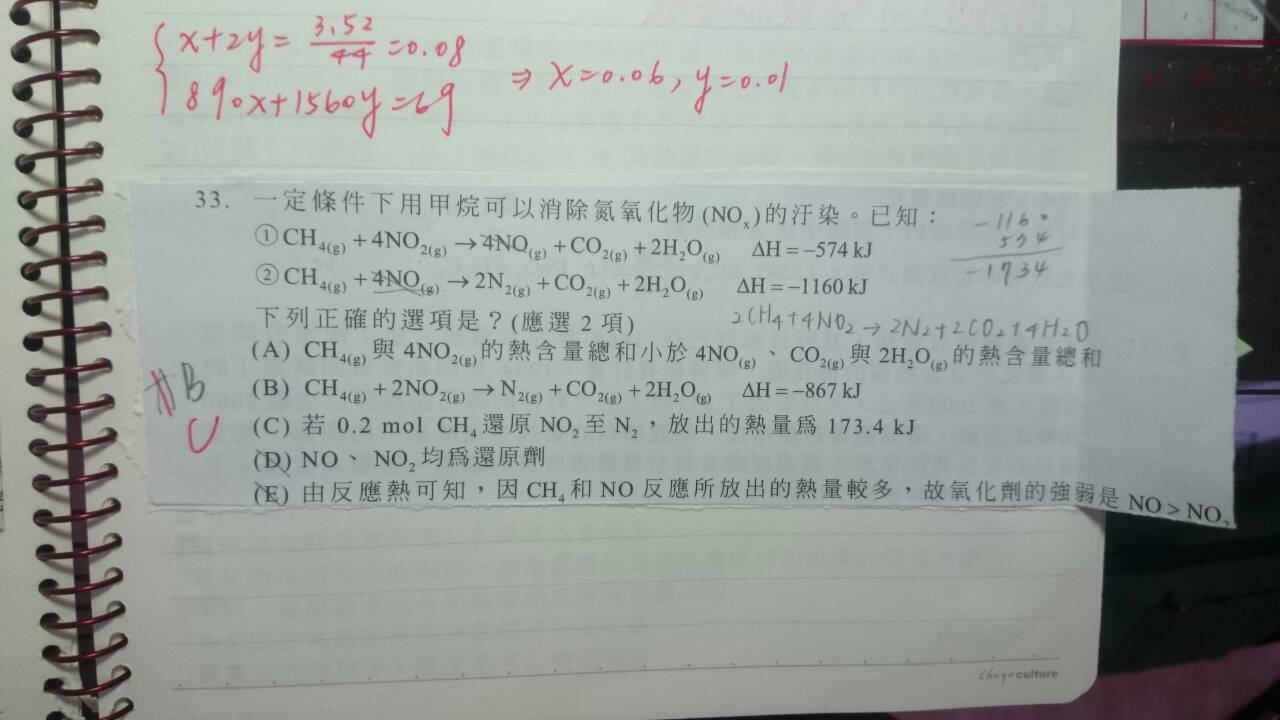 x+2y = 3.52/44 = 0.08
890x+1560y = 69
⇒ x=0.06, y=0.01
33. 一定條件下用甲烷可以消除氮氧化物(NOₓ)的汙染。已知：
①CH₄(g) + 4NO₂(g) → 4NO(g) + CO₂(g) + 2H₂O(g) ΔH = −574 kJ
②CH₄(g) + 4NO(g) → 2N₂(g) + CO₂(g) + 2H₂O(g) ΔH = −1160 kJ
-1160
574
-1734
下列正確的選項是？(應選 2 項)
2CH4+4NO2 → 2N2+2CO2+4H2O
(A) CH₄(g)與 4NO₂(g)的熱含量總和小於 4NO(g)、CO₂(g)與 2H₂O(g)的熱含量總和
(B) CH₄(g) + 2NO₂(g) → N₂(g) + CO₂(g) + 2H₂O(g) ΔH = −867 kJ
(C) 若 0.2 mol CH₄還原 NO₂至 N₂，放出的熱量爲 173.4 kJ
(D) NO、NO₂均爲還原劑
(E) 由反應熱可知，因 CH₄和 NO 反應所放出的熱量較多，故氧化劑的強弱是 NO > NO₂
B
culture